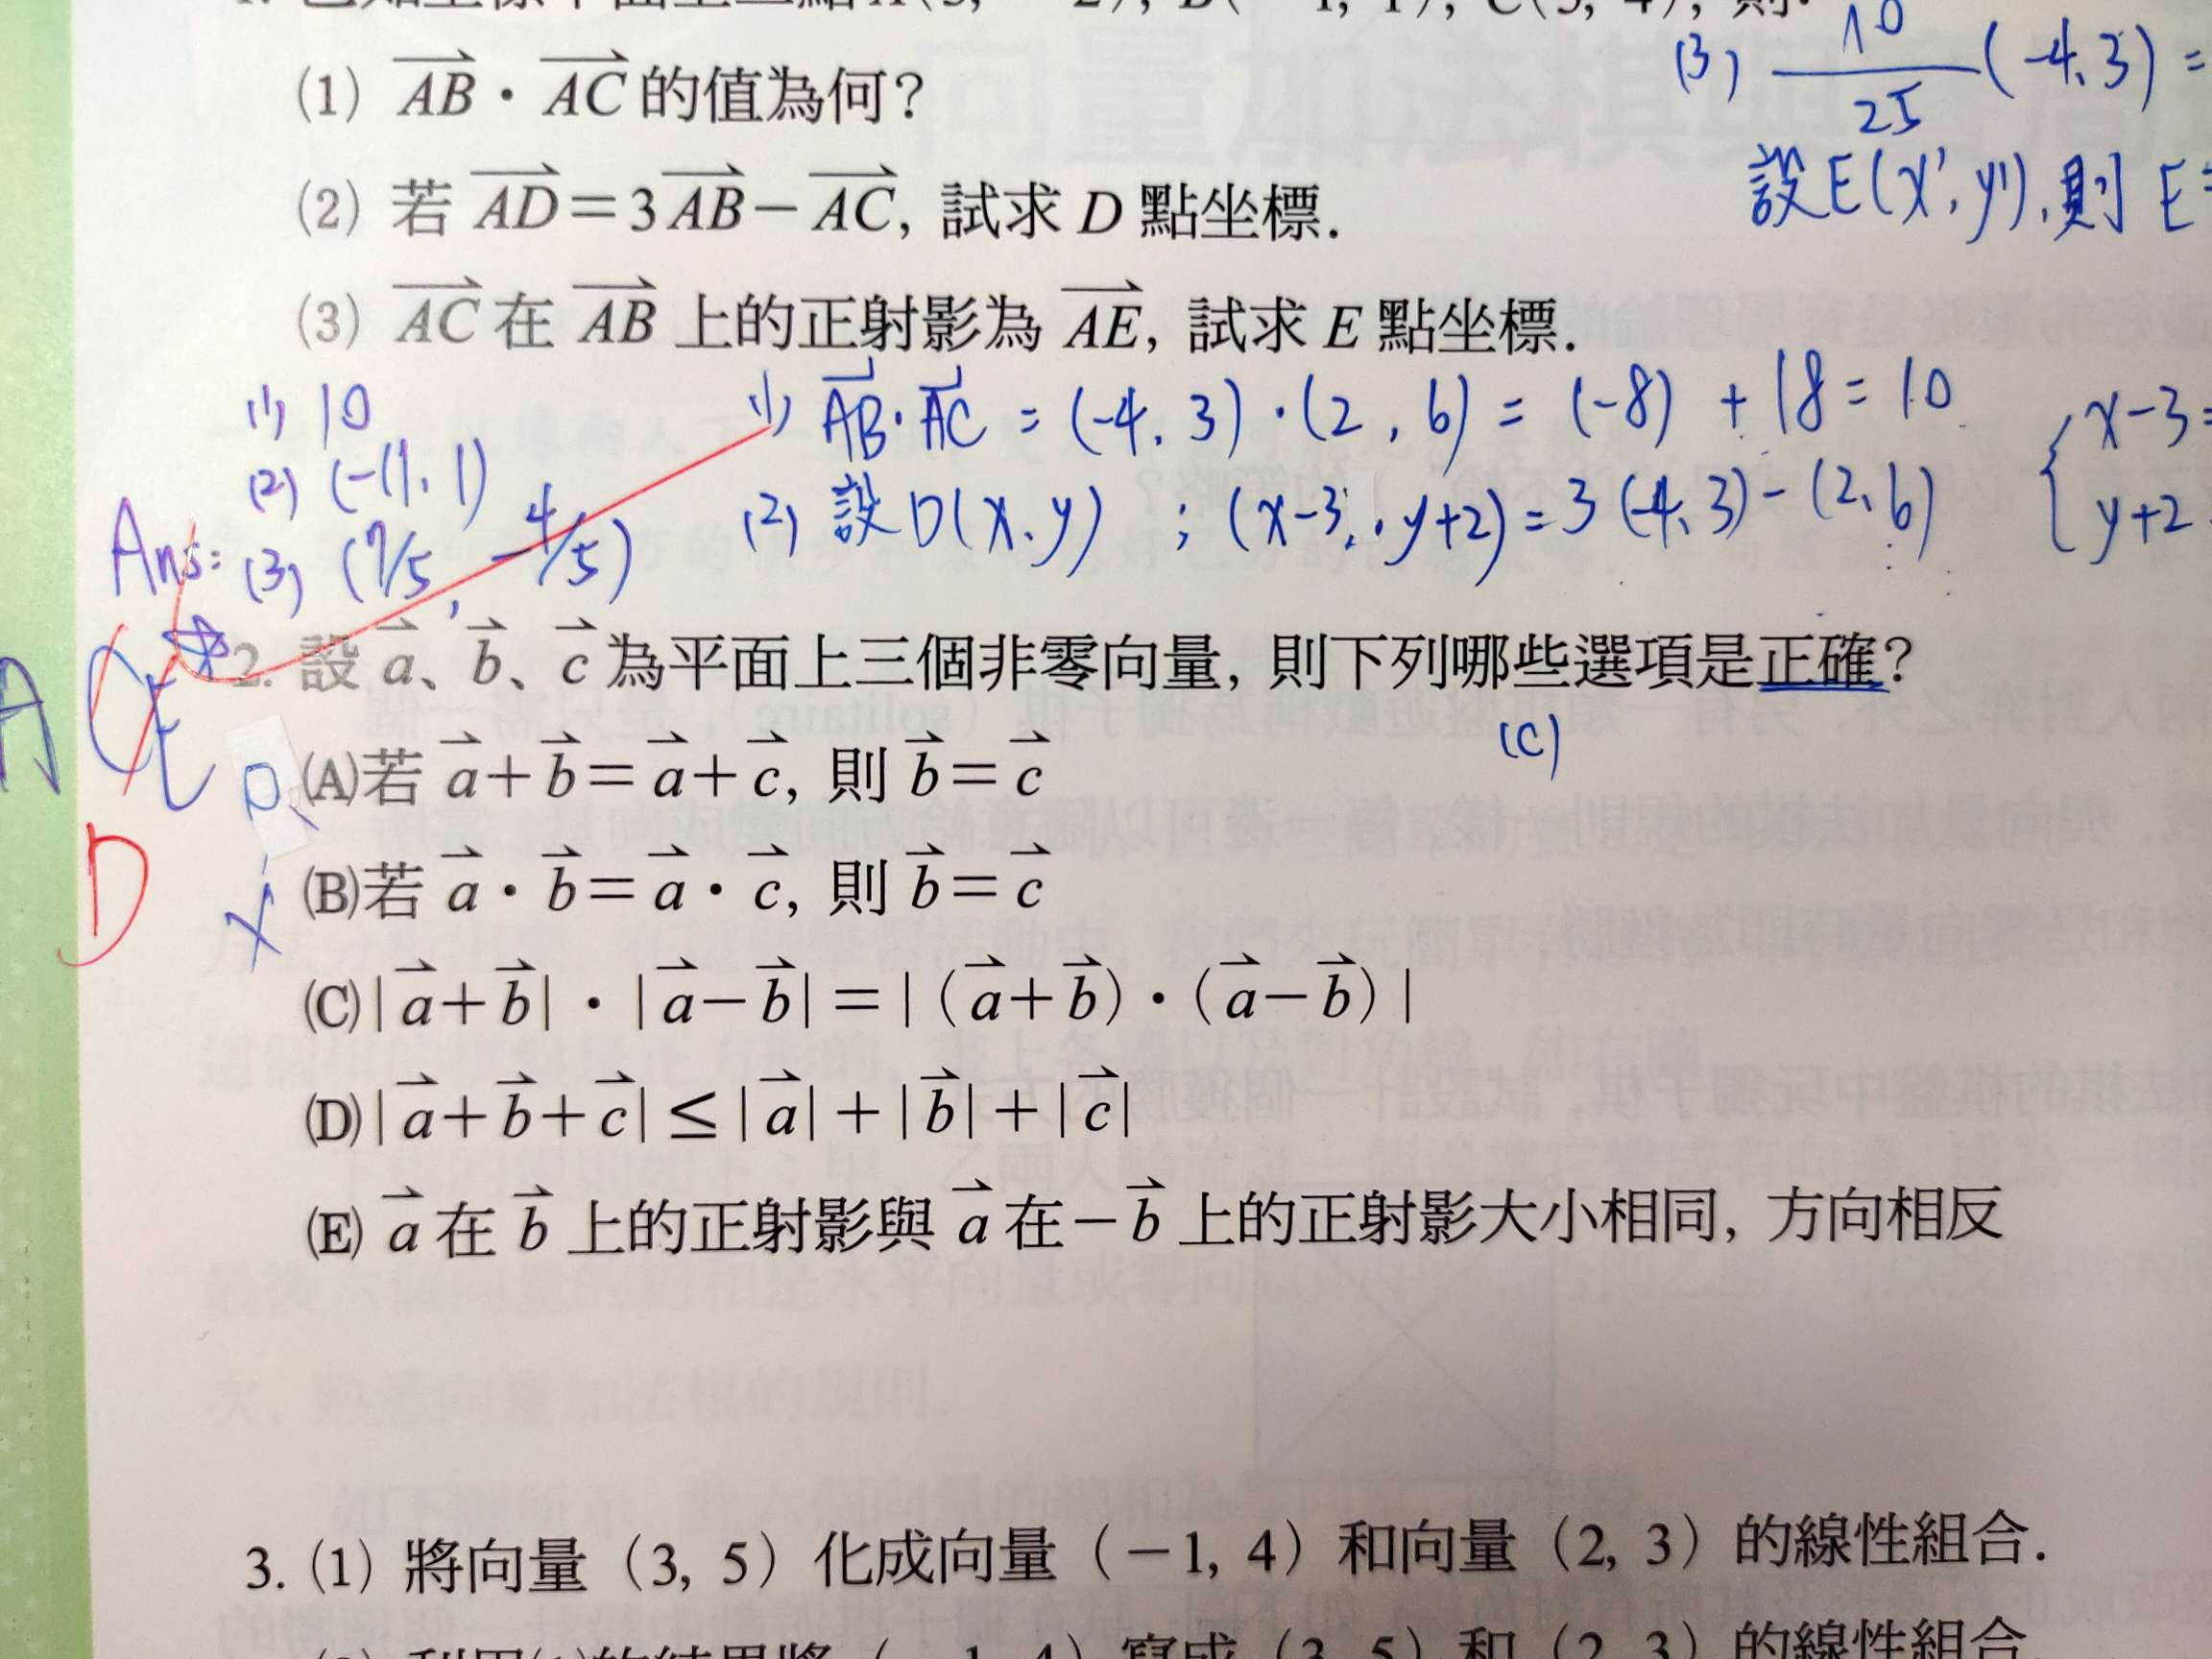 (3) 10/25 (-4, 3) =
設E(x', y'), 則 E
(1) \overrightarrow{AB}・\overrightarrow{AC} 的值為何?
(2) 若 \overrightarrow{AD}=3\overrightarrow{AB}-\overrightarrow{AC}, 試求 D 點坐標.
(3) \overrightarrow{AC} 在 \overrightarrow{AB} 上的正射影為 \overrightarrow{AE}, 試求 E 點坐標.
Ans:
(1) 10
(2) (-11, 1)
(3) (7/5, -4/5)
(1) \overrightarrow{AB}・\overrightarrow{AC} = (-4, 3)・(2, 6) = (-8) + 18 = 10
(2) 設D(x, y) ; (x-3, y+2) = 3(-4, 3) - (2, 6)
x-3=
y+2
A C E
D
2. 設 \vec{a}、\vec{b}、\vec{c} 為平面上三個非零向量, 則下列哪些選項是正確?
(C)
(A)若 \vec{a}+\vec{b}=\vec{a}+\vec{c}, 則 \vec{b}=\vec{c}
X
(B)若 \vec{a}・\vec{b}=\vec{a}・\vec{c}, 則 \vec{b}=\vec{c}
(C)|\vec{a}+\vec{b}|・|\vec{a}-\vec{b}|=|(\vec{a}+\vec{b})・(\vec{a}-\vec{b})|
(D)|\vec{a}+\vec{b}+\vec{c}|≤|\vec{a}|+|\vec{b}|+|\vec{c}|
(E) \vec{a} 在 \vec{b} 上的正射影與 \vec{a} 在-\vec{b} 上的正射影大小相同, 方向相反
3. (1) 將向量 (3, 5) 化成向量 (-1, 4) 和向量 (2, 3) 的線性組合.